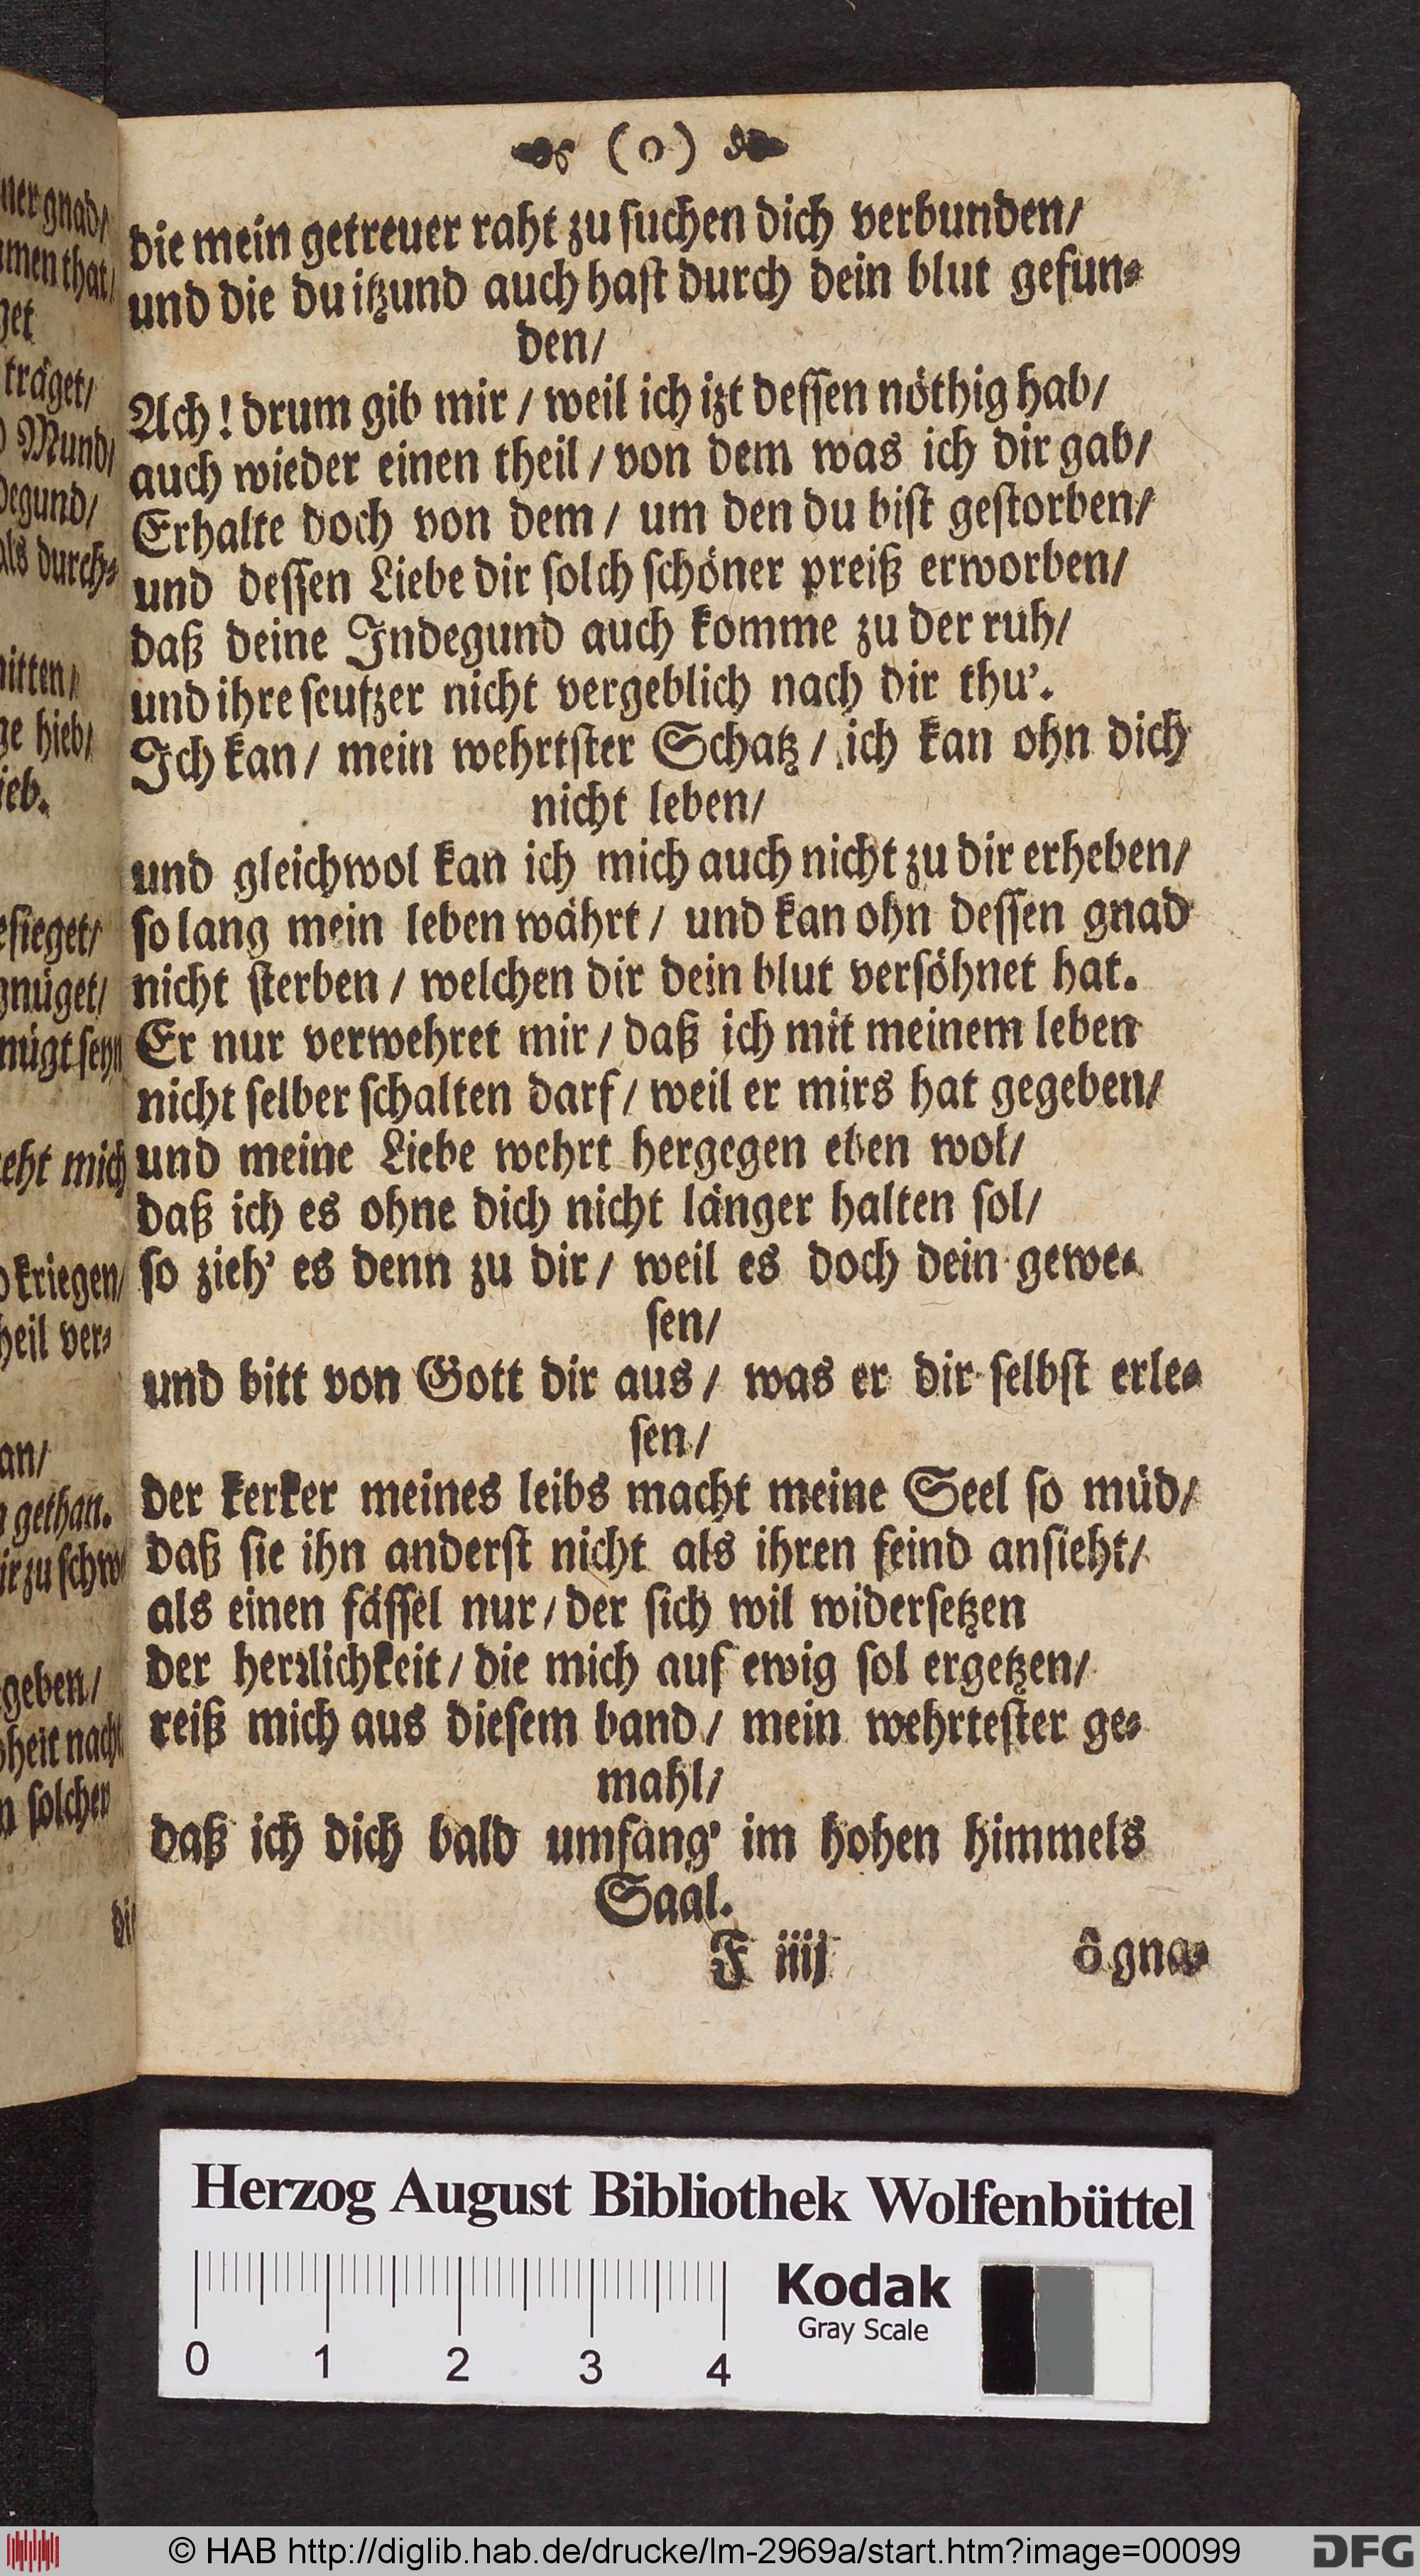 (o)
die mein getreuer raht zu ſuchen dich verbunden/
und die du itzund auch haſt durch dein blut gefun-
den/
Ach! drum gib mir / weil ich izt deſſen nöthig hab/
auch wieder einen theil / von dem was ich dir gab/
Erhalte doch von dem / um den du biſt geſtorben/
und deſſen Liebe dir ſolch ſchöner preiß erworben/
daß deine Indegund auch komme zu der ruh/
und ihre ſeufzer nicht vergeblich nach dir thu'.
Ich kan / mein wehrtſter Schatz / ich kan ohn dich
nicht leben/
und gleichwol kan ich mich auch nicht zu dir erheben/
ſo lang mein leben währt / und kan ohn deſſen gnad
nicht ſterben / welchen dir dein blut verſöhnet hat.
Er nur verwehret mir / daß ich mit meinem leben
nicht ſelber ſchalten darf / weil er mirs hat gegeben/
und meine Liebe wehrt hergegen eben wol/
daß ich es ohne dich nicht länger halten ſol/
ſo zieh' es denn zu dir / weil es doch dein gewe-
ſen/
und bitt von Gott dir aus / was er dir ſelbſt erle-
ſen/
der kerker meines leibs macht meine Seel ſo müd/
daß ſie ihn anderſt nicht als ihren feind anſieht/
als einen fäſſel nur / der ſich wil widerſetzen
der herꝛlichkeit / die mich auf ewig ſol ergetzen/
reiß mich aus dieſem band / mein wehrteſter ge-
mahl/
daß ich dich bald umfang' im hohen himmels
Saal.
F iiij
ô gna-
ner gnad/
men that/
get
träget/
Mund/
degund/
als durch-
nitten/
ge hieb/
ieb.
eſieget/
gnüget/
nügt ſeyn
eht mich
kriegen/
heil ver-
an/
gethan.
ir zu ſchw
geben/
heit nach
n ſolcher
die
Herzog August Bibliothek Wolfenbüttel
0 1 2 3 4
Kodak
Gray Scale
© HAB http://diglib.hab.de/drucke/lm-2969a/start.htm?image=00099
DFG